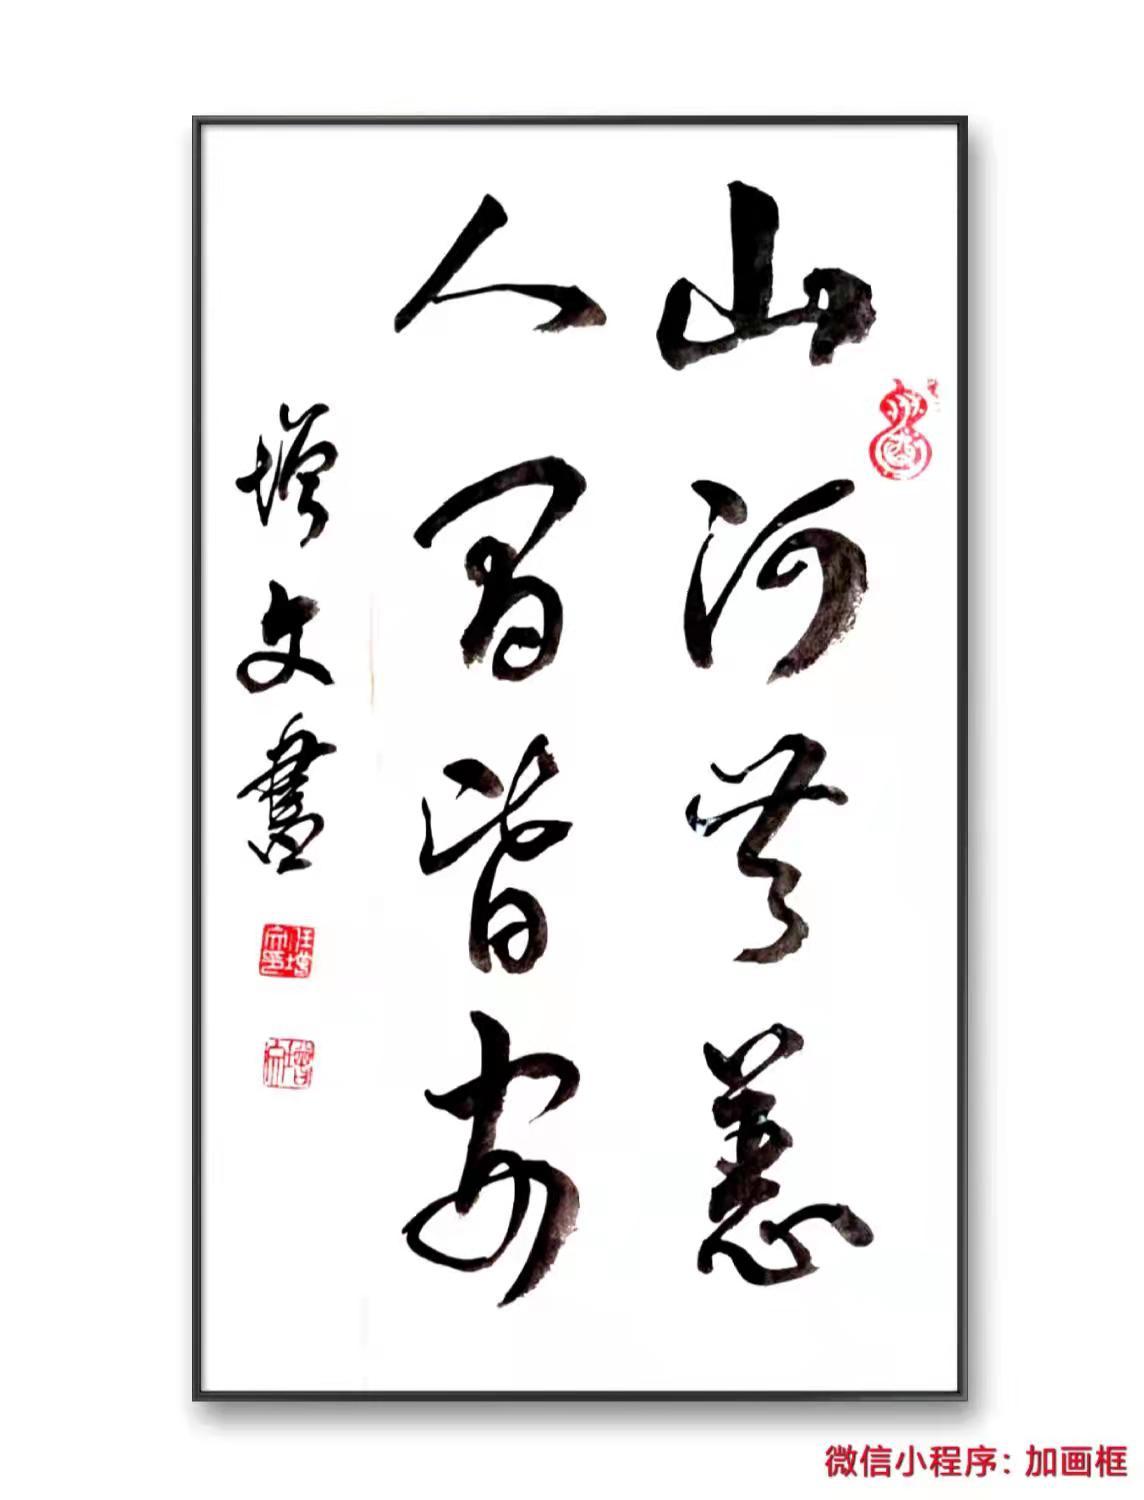 山河无恙
人间皆安
增文书
微信小程序：加画框